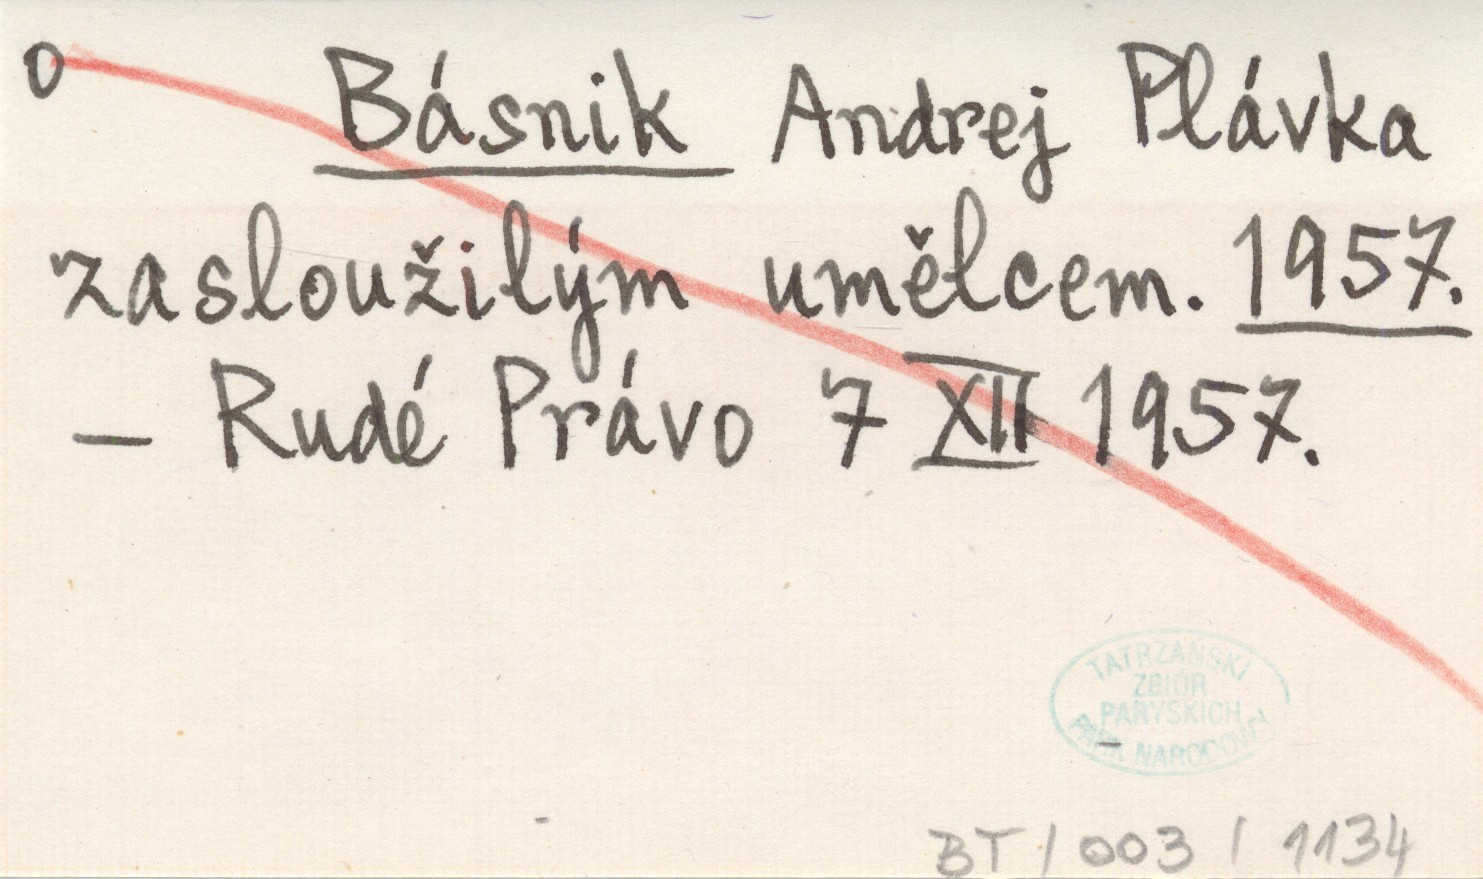 o Básnik Andrej Plávka
zasloužilým umělcem. 1957.
— Rudé Právo 7 XII 1957.
TATRZAŃSKI
ZBIÓR
PARYSKICH
PARK NARODOWY
BT / 003 / 1134